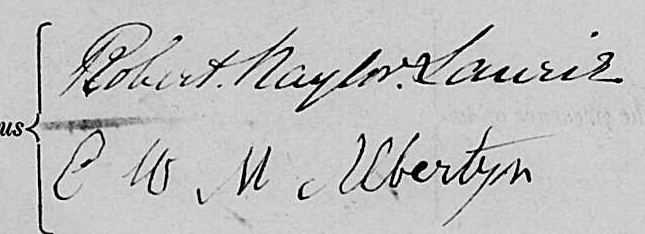 Robert. Naylor. Laurie
us
C W M Albertyn